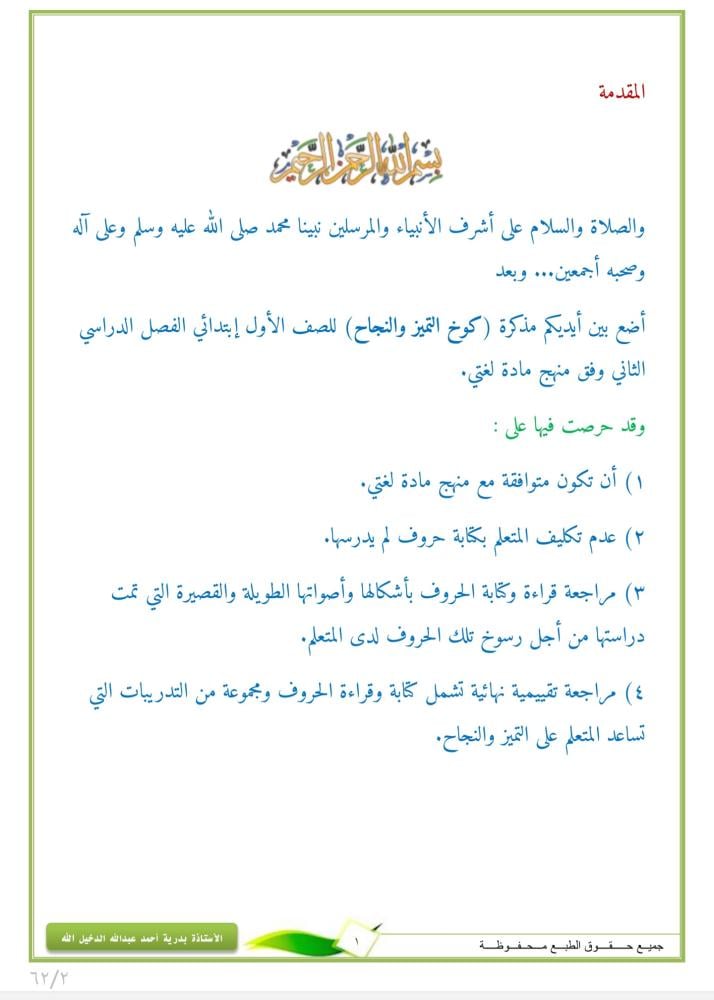 المقدمة
بسم الله الرحمن الرحيم
والصلاة والسلام على أشرف الأنبياء والمرسلين نبينا محمد صلى الله عليه وسلم وعلى آله
وصحبه أجمعين... وبعد
أضع بين أيديكم مذكرة (كوخ التميز والنجاح) للصف الأول إبتدائي الفصل الدراسي
الثاني وفق منهج مادة لغتي.
وقد حرصت فيها على :
١) أن تكون متوافقة مع منهج مادة لغتي.
٢) عدم تكليف المتعلم بكتابة حروف لم يدرسها.
٣) مراجعة قراءة وكتابة الحروف بأشكالها وأصواتها الطويلة والقصيرة التي تمت
دراستها من أجل رسوخ تلك الحروف لدى المتعلم.
٤) مراجعة تقييمية نهائية تشمل كتابة وقراءة الحروف ومجموعة من التدريبات التي
تساعد المتعلم على التميز والنجاح.
جميع حقوق الطبع محفوظة
١
الأستاذة بدرية أحمد عبدالله الدخيل الله
٦٢/٢